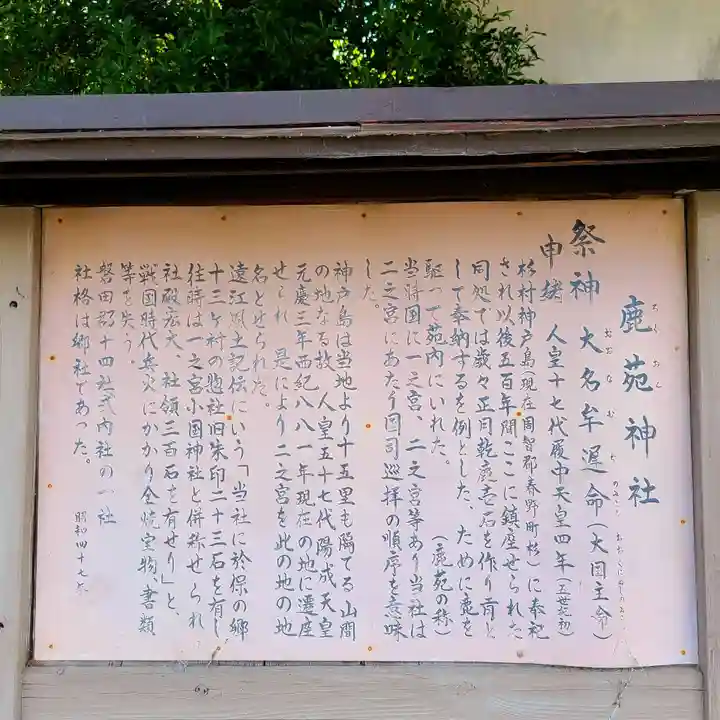 鹿苑神社
ろくおん
祭神 大名牟遅命(大国主命)
おおなむちのみこと おおくにぬしのみこと
由緒 人皇十七代履中天皇四年(五世紀初)
杉村神戸島(現在周智郡春野町杉)に奉祀
され以後五百年間ここに鎮座せられた
同処では歳々正月乾鹿壱石を作り苜と
して奉納するを例とした、ために鹿を
駆って苑内にいれた。(鹿苑の称)
当時国に一之宮、二之宮等あり当社は
二之宮にあたり国司巡拝の順序を意味
した。
神戸島は当地より十五里も隔てる山間
の地なる故、人皇五十七代陽成天皇
元慶三年西紀八八一年現在の地に遷座
せられ 是により二之宮を此の地の地
名とせられた。
遠江風土記伝にいう「当社に於保の郷
十三ヶ村の惣社旧朱印二十三石を有し
往時は一之宮小国神社と併称せられ
社破宏大、社領三百石を有せり」と、
戦国時代兵火にかかり全焼宝物、書類
等を失う。
磐田郡十四社式内社の一社
社格は郷社であった。
昭和四十七年